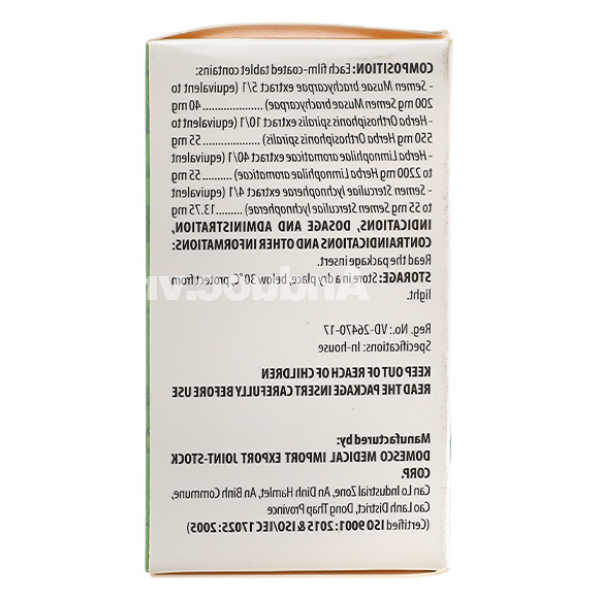 COMPOSITION: Each film-coated tablet contains:
- Semen Musae brachycarpae extract 5/1 (equivalent to
200 mg Semen Musae brachycarpae) ..................... 40 mg
- Herba Orthosiphonis spiralis extract 10/1 (equivalent to
550 mg Herba Orthosiphonis spiralis) ..................... 55 mg
- Herba Limnophilae aromaticae extract 40/1 (equivalent
to 2200 mg Herba Limnophilae aromaticae) ........ 55 mg
- Semen Sterculiae lychnopherae extract 4/1 (equivalent
to 55 mg Semen Sterculiae lychnopherae) .......... 13.75 mg
INDICATIONS, DOSAGE AND ADMINISTRATION,
CONTRAINDICATIONS AND OTHER INFORMATIONS:
Read the package insert.
STORAGE: Store in a dry place, below 30°C, protect from
light.
Reg. No.: VD-26470-17
Specifications: In-house
KEEP OUT OF REACH OF CHILDREN
READ THE PACKAGE INSERT CAREFULLY BEFORE USE
Manufactured by:
DOMESCO MEDICAL IMPORT EXPORT JOINT-STOCK
CORP.
Can Lo Industrial Zone, An Dinh Hamlet, An Binh Commune,
Cao Lanh District, Dong Thap Province
(Certified ISO 9001 : 2015 & ISO/IEC 17025 : 2005)